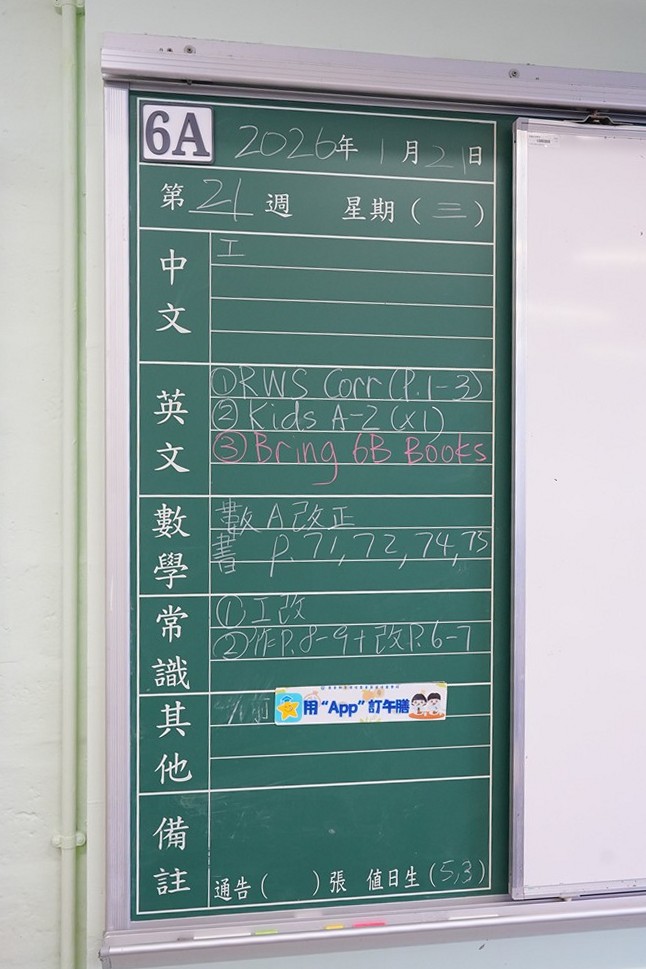 6A 2026年 1月21日
第 21 週 星期(三)
中文
工
英文
①RWS Corr (P.1-3)
②Kids A-Z (X1)
③Bring 6B Books
數學
數A改正
書 P.71,72,74,75
常識
①工改
②作P.8-9+改P.6-7
其他
前
用“App”訂午膳
備註
通告( )張 值日生(5,3)